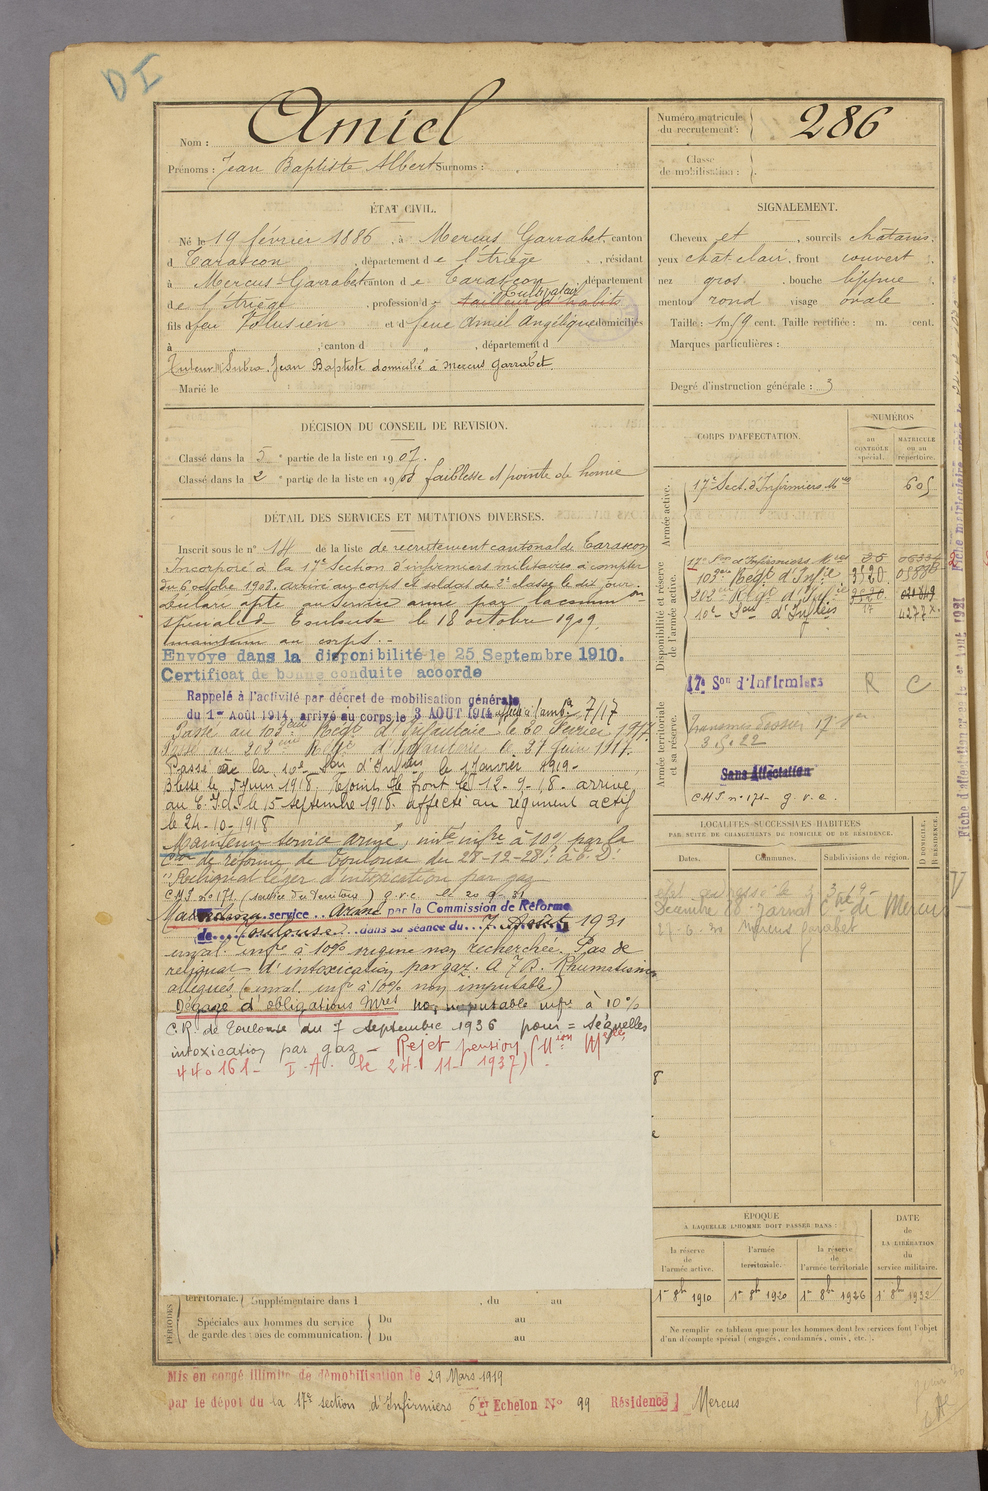 DI
Nom : Amiel
Prénoms : Jean Baptiste Albert Surnoms :
Numéro matricule du recrutement : 286
Classe de mobilisation :
ÉTAT CIVIL.
Né le 19 février 1886, à Mercus Garrabet, canton
d Tarascon, département de l'Ariège, résidant
à Mercus-Garrabet canton de Tarascon, département
de l'Ariège, profession de tailleur d'habits Cultivateur
fils d feu Volusien et d feue Amiel Angélique domiciliés
à , canton d , département d
Tuteur Mr Subra Jean Baptiste domicilié à Mercus Garrabet.
Marié le
SIGNALEMENT.
Cheveux et , sourcils chatains,
yeux chat clair, front couvert ,
nez gros , bouche lippue ,
menton rond visage ovale
Taille : 1 m. 59 cent. Taille rectifiée : m. cent.
Marques particulières :
Degré d'instruction générale : 3
DÉCISION DU CONSEIL DE REVISION.
Classé dans la 5e partie de la liste en 1907.
Classé dans la 2e partie de la liste en 1908 faiblesse et pointe de hernie
DÉTAIL DES SERVICES ET MUTATIONS DIVERSES.
Inscrit sous le n° 14 de la liste de recrutement cantonal de Tarascon
Incorporé à la 17e Section d'infirmiers militaires à compter
du 6 octobre 1908. arrivé au corps et soldat de 2e classe le dit jour.
Déclaré apte au service armé par la comm on
spéciale de Toulouse le 18 octobre 1909.
maintenu au corps.-
Envoyé dans la disponibilité le 25 Septembre 1910.
Certificat de bonne conduite accordé
Rappelé à l'activité par décret de mobilisation générale
du 1er Août 1914, arrivé au corps le 3 AOUT 1914 affecté à l'amb. 7/17
Passé au 103ème Régt d'Infanterie le 20 Février 1917
Passé au 303ème Régt d'Infanterie le 27 Juin 1917.
Passé à la 10e Son d'Infiers le 1 Janvier 1919-
Blessé le 5 Juin 1918, rejoint le front le 12-9-18- arrivé
au C.I.d. le 15 septembre 1918. affecté au régiment actif
le 24-10-1918
Maintenu service armé, invté infre à 10% par la
Con de réforme de Toulouse du 28-12-28: à t. D:
"Reliquat léger d'intoxication par gaz
C.M.I. n° 171 (service du Territoire) g.v.c. le 20-9-31
Maintenu service Armé par la Commission de Réforme
de Toulouse dans sa séance du 7 Août 1931
inval. infre à 10% régime non recherchée. Pas de
reliquat d'intoxication par gaz. A.J.R. Rhumatismes
allégués (inval. infre à 10% non imputable)
Dégagé d'obligations Mres non imputable infre à 10%
C.R. de Toulouse du 7 septembre 1936 pour = séquelles
intoxication par gaz - Rejet pension (Mion Melle
440161- I.A. le 24-11-1937).
CORPS D'AFFECTATION.
NUMÉROS
AU CONTRÔLE spécial.
MATRICULE ou au répertoire.
Armée active.
17e Sect. d'Infirmiers Mres 605
Disponibilité et réserve de l'armée active.
17e Son d'Infirmiers Mres 25
103ème Régt d'Infie 3320
303ème Régt d'Infie
10e Son d'Infiers 17 4277
Armée territoriale et sa réserve.
17e Son d'Infirmiers R C
Sans Affectation
C.M.I. n° 171- g.v.c.
LOCALITÉS SUCCESSIVES HABITÉES
PAR SUITE DE CHANGEMENTS DE DOMICILE OU DE RÉSIDENCE.
D DOMICILE. R RÉSIDENCE.
Dates. Communes. Subdivisions de région.
Mercus Garabet
ÉPOQUE
A LAQUELLE L'HOMME DOIT PASSER DANS :
la réserve de l'armée active.
l'armée territoriale.
la réserve de l'armée territoriale
DATE de LA LIBÉRATION du service militaire.
1er 8bre 1910
1er 8bre 1920
1er 8bre 1926
1er 8bre 1932
Ne remplir ce tableau que pour les hommes dont les services font l'objet
d'un décompte spécial (engagés, condamnés, omis, etc.).
PÉRIODES
territoriale. Supplémentaire dans l , du au
Spéciales aux hommes du service de garde des voies de communication.
Du au
Du au
Mis en congé illimité de démobilisation le 29 Mars 1919
par le dépôt du la 17e section d'Infirmiers 6e Echelon N° 99 Résidence Mercus